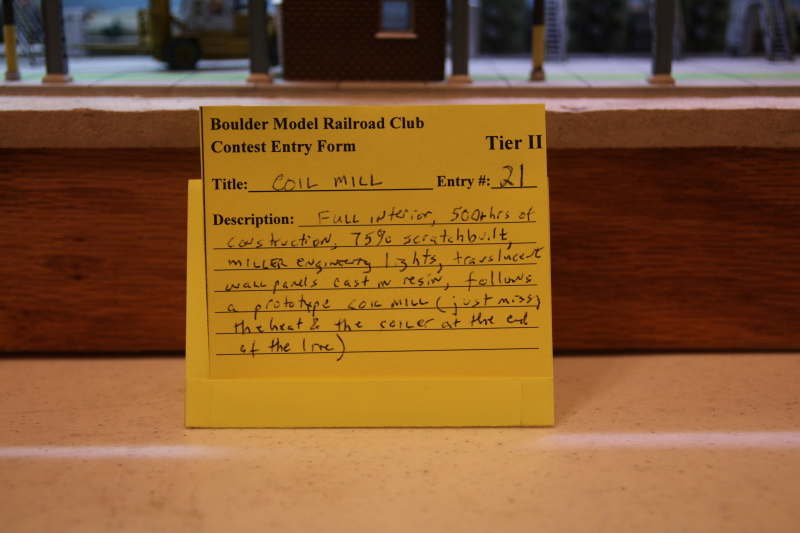 Boulder Model Railroad Club
Contest Entry Form Tier II
Title: COIL MILL Entry #: 21
Description: Full interior, 500+hrs of
construction, 75% scratchbuilt,
MILLER engineering lights, translucent
wall panels cast in resin, follows
a prototype COIL MILL (just miss)
the heat & the coiler at the end
of the line)